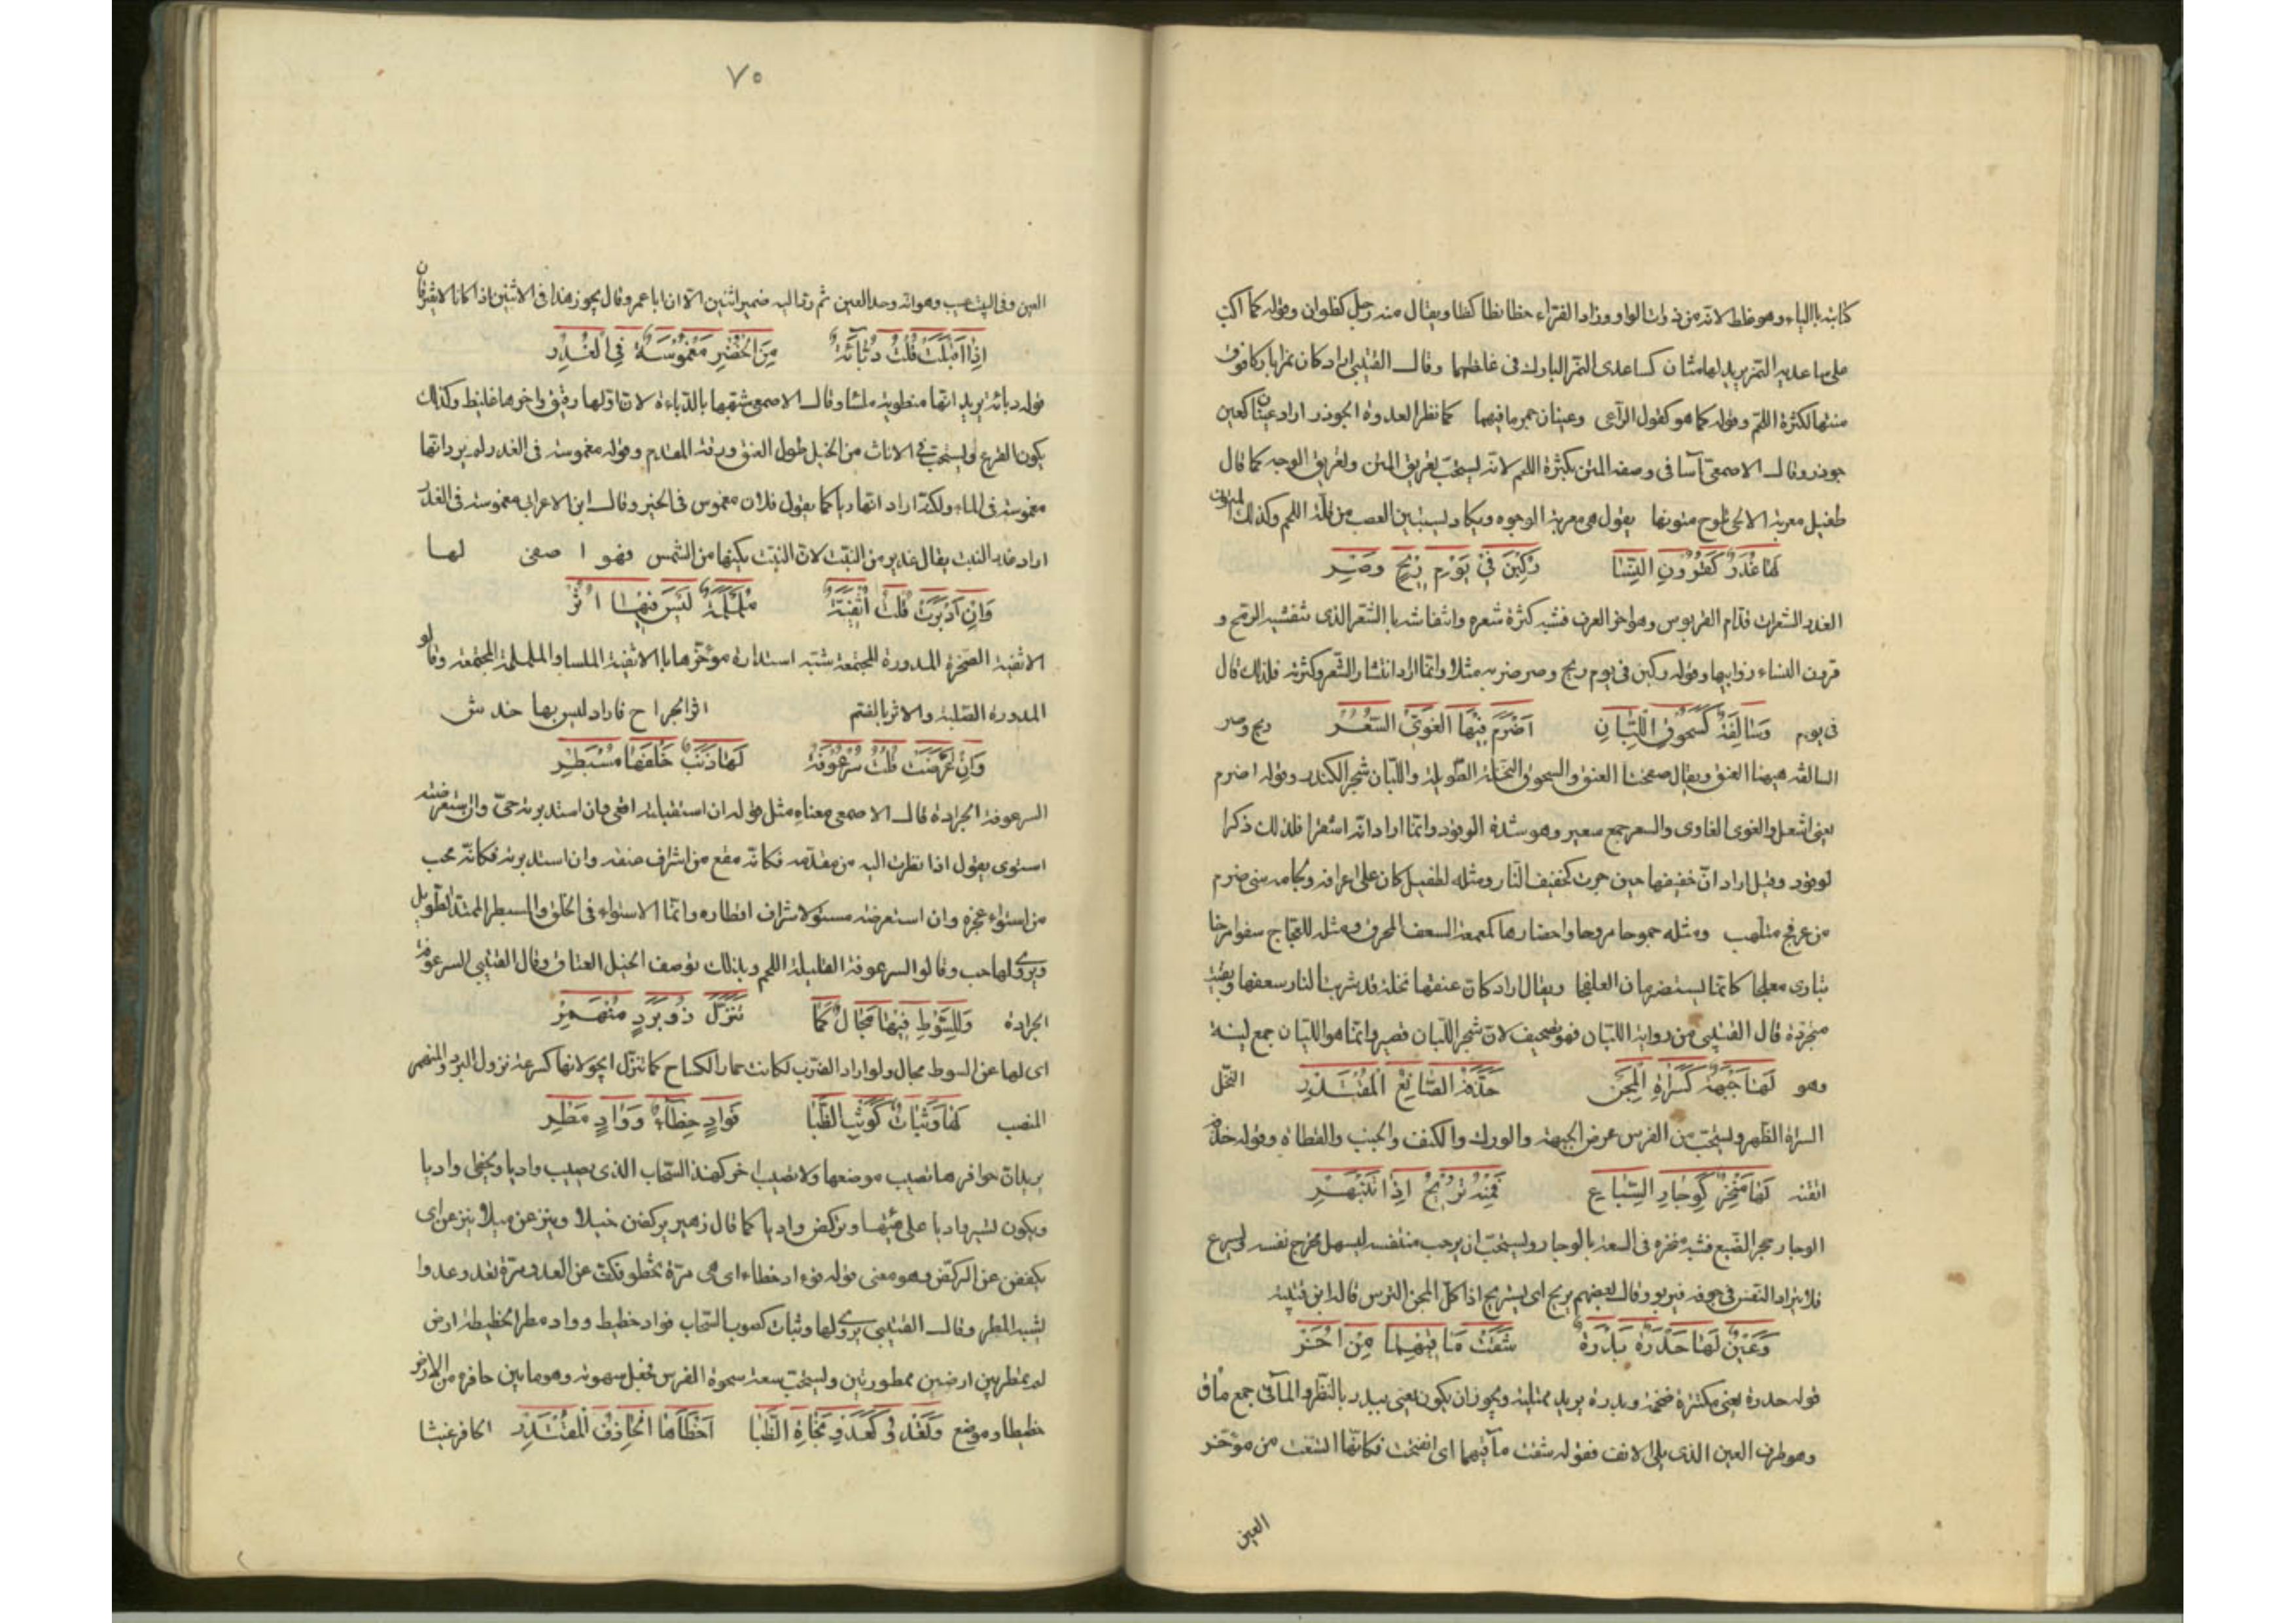 كتابته بالياء وهو غلط لانه من ذوات الواو وزاد الفراء حظا بظا كظا ويقال منه رجل كظوان وقوله كما اكب
على ساعديه النمر يريد لها متنان كساعدى النمر البارك فى غلظهما وقال القتيبى اراد كان نمرا باركا فوق
متنها لكثرة اللحم وقوله كما هو كقول الراعى وعينان حمر مآقيهما كما نظر العدوة الجوذر اراد عينان كعين
جوذر وقال الاصمعى أسا فى وصفه المتن بكثرة اللحم لانه يستحب تعريق المتن وتعريق الوجه كما قال
طفيل معرقة الالحى تلوح متونها يقول هى معرقة الوجوه ويكاد يستبين العصب من قلة اللحم وكذلك المتون
لَهَا غُدَرٌ كَقُرُونِ النِّسَا رُكِّبْنَ فِى يَوْمِ رِيْحٍ وَصِرّ
الغدر الشعرات قدام القربوس وهو اخر العرف فشبه كثرة شعره وانتفاشه بالشعر الذى تنفشه الريح و
قرون النساء ذوايبها وقوله ركبن فى يوم ريح وصر ضربه مثلا وانما اراد انتشار الشعر وكثرته فلذلك قال
فى يوم وَسَالِفَةٌ كَسَحُوقِ اللُّبَانِ اَضْرَمَ فِيْهَا الغَوِىُّ السُّعُرْ ريح وصر
السالفة هيهنا العنق ويقال صفحتا العنق والسحوق النخلة الطويلة واللبان شجر الكندر وقوله اضرم
يعنى اشعل والغوى الغاوى والسعر جمع سعير وهو شدة الوقود وانما اراد انها شقرا فلذلك ذكرا
لوقود وقيل اراد ان حفيفها حين جرت كحفيف النار ومثله لطفيل كان على اعرافه ولجامه سنى ضرم
من عرفج متلهب ومثله جموحا مروحا واحضارها كمعمعة السعف المحرق ومثله للعجاج سفوا مرخا
تبارى معلجا كانما يستضرمان العرفجا ويقال اراد كان عنقها نخلة قد شربت النار سعفها وبقيت
منجردة قال القتيبى من رواية اللبان فهو تصحيف لان شجر اللبان قصير وانما هو الليان جمع لينة
وهو لَهَا جَبْهَةٌ كَسَرَاةِ الْمِجَنّ حَذَّفَهُ الصَّانِعُ الْمُقْتَدِرْ النخل
السراة الظهر ويستحب من الفرس عرض الجبهة والورك والكتف والجنب والقطاة وقوله حذفه
اتقنه لَهَا مَنْخِرٌ كَوِجَارِ السِّبَاعِ فَمِنْهُ تُرِيْحُ اِذَا تَنْبَهِرْ
الوجار جحر الضبع فشبه منخره فى السعة بالوجار ويستحب ان يرحب متنفسه ليسهل مخرج نفسه ويسرع
فلا يتراد النفس فى جوفه فيربو وقال بعضهم يريح اى يستريح اذا كل المجن الترس قاله ابن قتيبة
وَعَيْنٌ لَهَا حَدْرَةٌ بَدْرَةٌ شُقَّتْ مَآقِيْهِمَا مِنْ اُخَرْ
قوله حدرة يعنى مكتنزة ضخمة وبدرة يريد ممتلية ويجوز ان يكون يعنى يبدر بالنظر والمآقى جمع مأق
وهو طرف العين الذى يلى الانف فقوله شقت مآقيهما اى انفتحت فكانها انشقت من موخر
العين
٧٥
العين وفى البيت عيب وهو انه وحد العين ثم رد اليه ضمير اثنين الا ان ابا عمر وقال يجوز هذا فى الاثنين اذا كانا لا يفترقان
اِذَا اَقْبَلَتْ قُلْتَ دُبَّائَةٌ مِنَ الخُضْرِ مَغْمُوْسَةٌ فِى الغُدُرْ
قوله دبائه يريد انها منطوية ملسا وقال الاصمعى شبهها بالدباءة لان اولها رقيق واخرها غليظ وكذلك
يكون الفرع ويستحب فى الاناث من الخيل طول العنق ورقة المقدم وقوله مغموسة فى الغدر لم يرد انها
مغموسة فى الماء ولكنه اراد انها ريا كما يقول فلان مغموس فى الخير وقال ابن الاعرابى مغموسة فى الغدر
اراد غدير النبت يقال غدير من النبت لان النبت يكنها من الشمس فهو اصفى لها
وَاِنْ اَدْبَرَتْ قُلْتَ اُثْفِيَّةٌ مُلَمْلَمَةٌ لَيْسَ فِيْهَا اُثُرْ
الاثفية الصخرة المدورة المجتمعة شبه استدارة مؤخرها بالاثفية الملسا والململمة المجتمعة وقالو
المدورة الصلبة والاثر بالضم اثر الجراح فاراد ليس بها خدش
وَاِنْ اَعْرَضَتْ قُلْتَ سُرْعُوْفَةٌ لَهَا ذَنَبٌ خَلْفَهَا مُسْبَطِرّ
السرعوفة الجرادة قال الاصمعى معناه مثل قوله ان استقبلته اقعى وان استدبرته جبى وان استعرضته
استوى يقول اذا نظرت اليه من مقدمه فكانه مقع من اشراف عنقه وان استدبرته فكانه مجب
من استواء عجزه وان استعرضته مستو لاشراف اقطاره وانما الاستواء فى الخلق والمسبطر الممتد الطويل
ويروى لها جبب وقالوا السرعوفة القليلة اللحم وبذلك توصف الخيل العتاق وقال القتيبى السرعوفة
الجرادة وَلِلسَّوْطِ فِيْهَا مَجَالٌ كَمَا تَنَزَّلَ ذُو بَرَدٍ مُنْهَمِرْ
اى لها عن السوط مجال ولو اراد الضرب لكانت حمار الكساح كما تنزل اى جولانها كسرعة نزول البرد والمنهمر
المنصب لَهَا وَثَبَاتٌ كَوَثْبِ الظِّبَا فَوَادٍ خِطَآءٌ وَوَادٍ مَطِرْ
يريد ان حوافرها تصيب موضعها ولا تصيب اخر كهذا السحاب الذى يصيب واديا ويخطى واديا
ويكون لتسير واديا على هينتها وتركض واديا كما قال زهير يركضن خيلا وينزعن ميلا ينزعن اى
يكففن عن الركض وهو معنى قوله فواد خطاء اى هى مرة تخطو فتكف عن العدو ومرة تعدو عدوا
يشبه المطر وقال القتيبى يروى لها وثبات كصوب السحاب فواد خطيط وواد مطر الخطيطة ارض
لم تمطر بين ارضين ممطورتين ويستحب سعة سحوة الفرس فجعل سهوته وهو ما بين حافره من الارض
خطيطا وموضع وَتَعْدُو كَعَدْوِ نَجَاةِ الظِّبَا اَخْطَاَهَا الْحَاذِفُ الْمُقْتَدِرْ الحافر غيثا